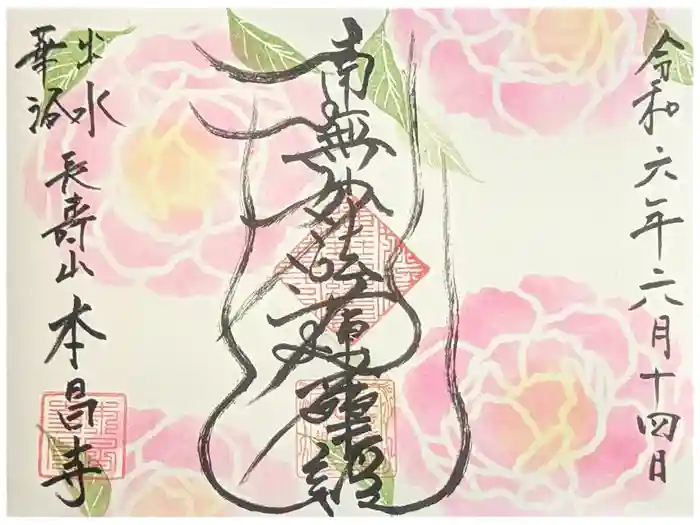 令和六年六月十四日
南無妙法蓮華経
出水
華浴
長寿山 本昌寺